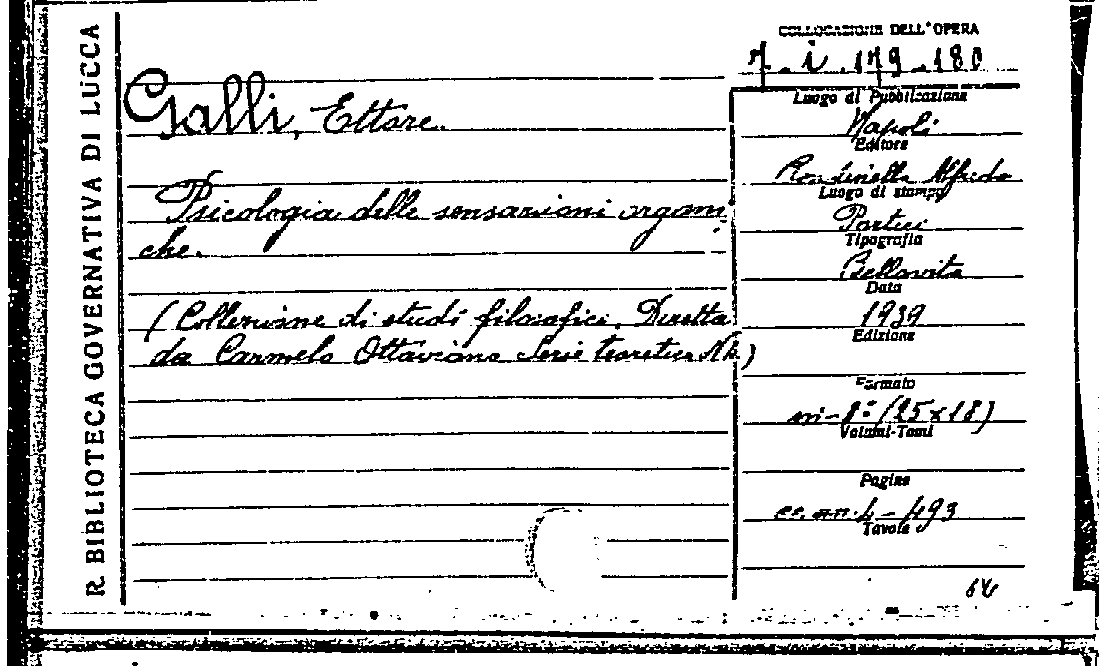 R. BIBLIOTECA GOVERNATIVA DI LUCCA
COLLOCAZIONE DELL'OPERA
7. i. 179.180
Galli, Ettore.
Psicologia delle sensazioni organi
che.
(Collezione di studi filosofici. Diretta
da Carmelo Ottaviano Serie teoretica N.)
Luogo di Pubblicazione
Napoli
Editore
Rondinella Alfredo
Luogo di stampa
Portici
Tipografia
Bellavista
Data
1939
Edizione
Formato
in-8° (25x18)
Volumi-Tomi
Pagine
cc. nn. 4 - 493
Tavole